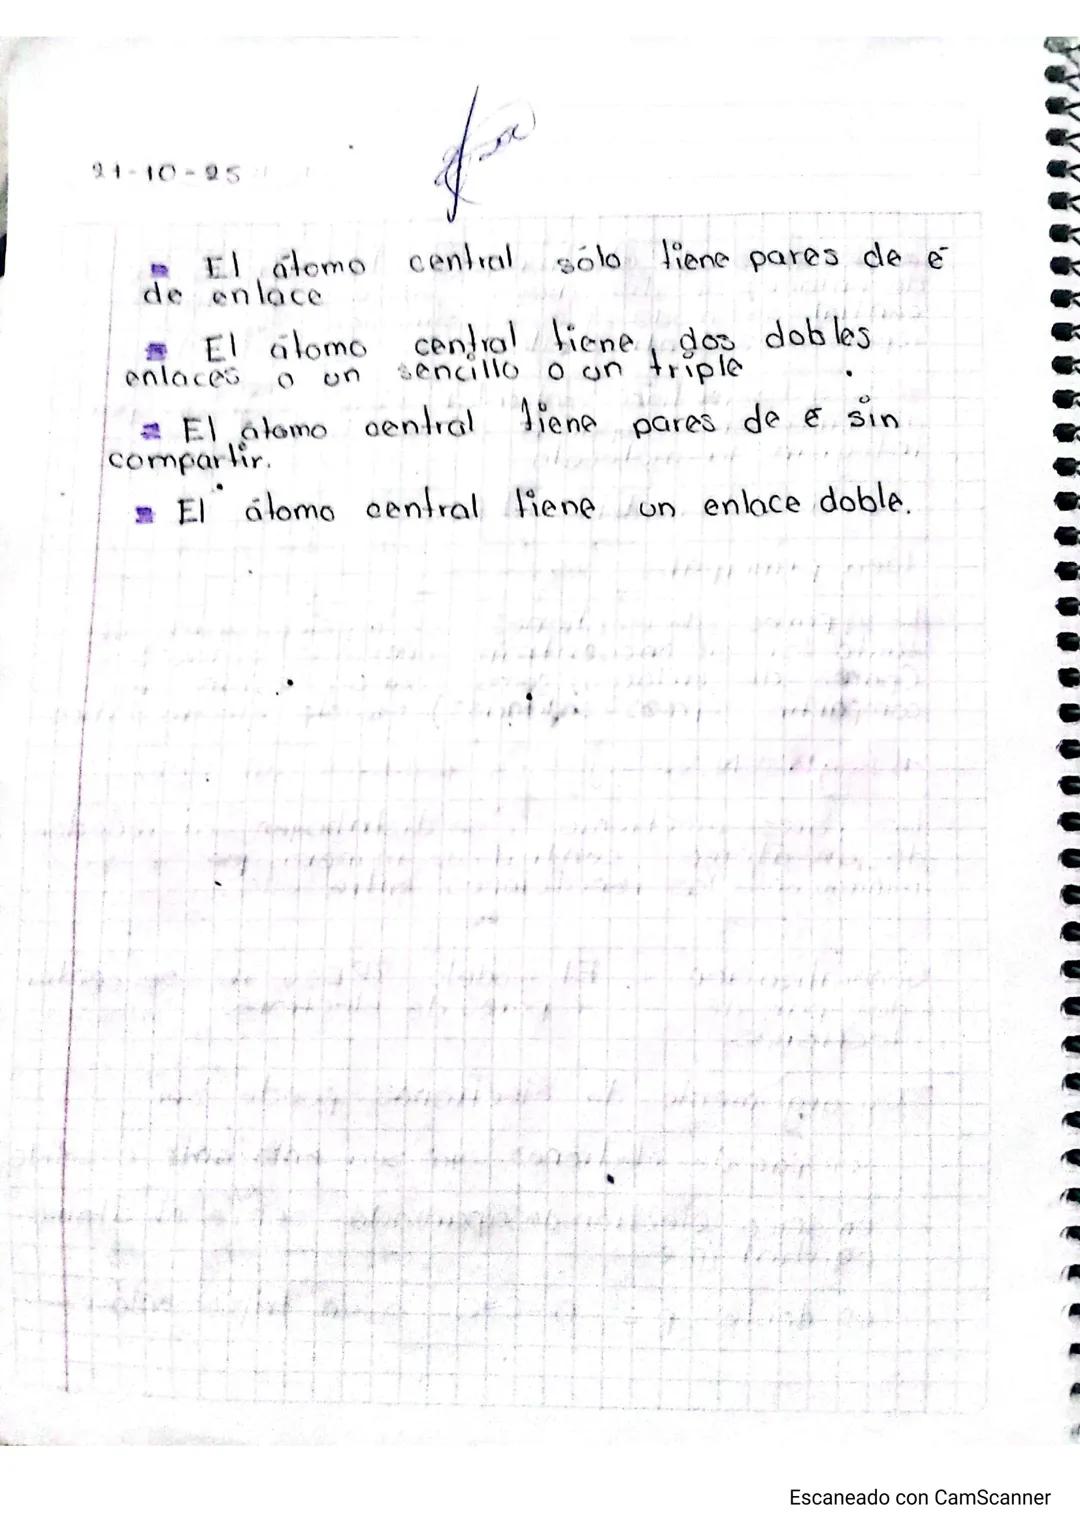 21-10-25
El átomo central sólo tiene pares de e⁻
de enlace
El átomo central tiene dos dobles
enlaces o un sencillo o un triple
El átomo central tiene pares de e⁻ sin
compartir.
El átomo central tiene un enlace doble.
Escaneado con CamScanner